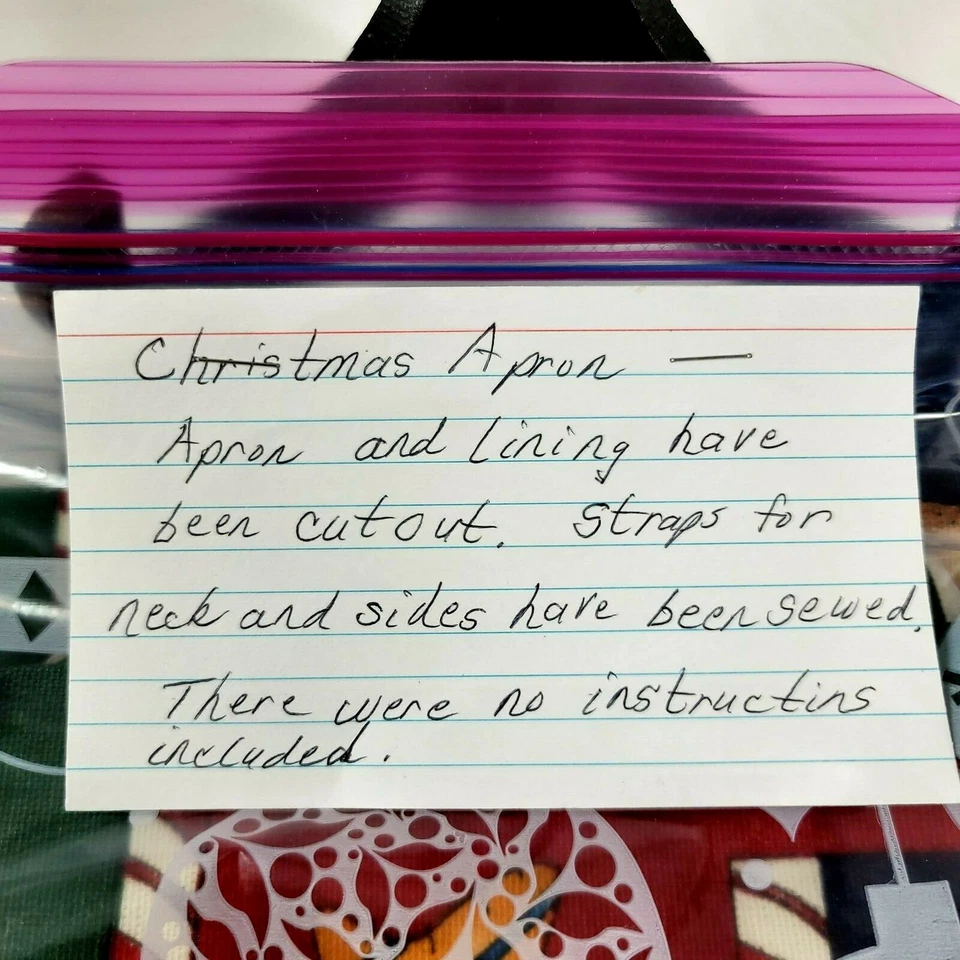 Christmas Apron —
Apron and lining have
been cutout. Straps for
neck and sides have been sewed.
There were no instructins
included.